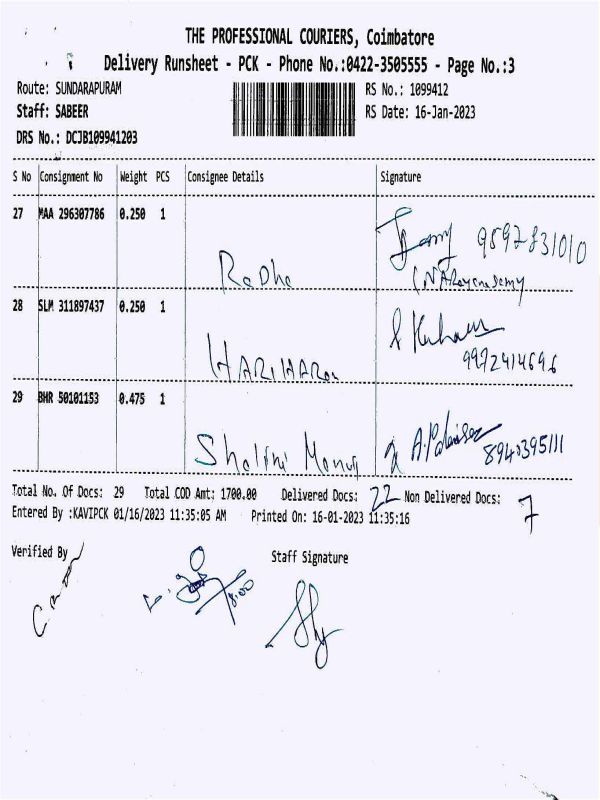 THE PROFESSIONAL COURIERS, Coimbatore
Delivery Runsheet - PCK - Phone No.:0422-3505555 - Page No.:3
Route: SUNDARAPURAM RS No.: 1099412
Staff: SABEER RS Date: 16-Jan-2023
DRS No.: DCJB109941203
S No Consignment No Weight PCS Consignee Details Signature
27 MAA 296307786 0.250 1
9897831010
Radha
28 SLM 311897437 0.250 1
HARIHARan
9972414696
29 BHR 50101153 0.475 1
Shalini
8940395111
Total No. Of Docs: 29 Total COD Amt: 1700.00 Delivered Docs: 22 Non Delivered Docs: 7
Entered By :KAVIPCK 01/16/2023 11:35:05 AM Printed On: 16-01-2023 11:35:16
Verified By Staff Signature